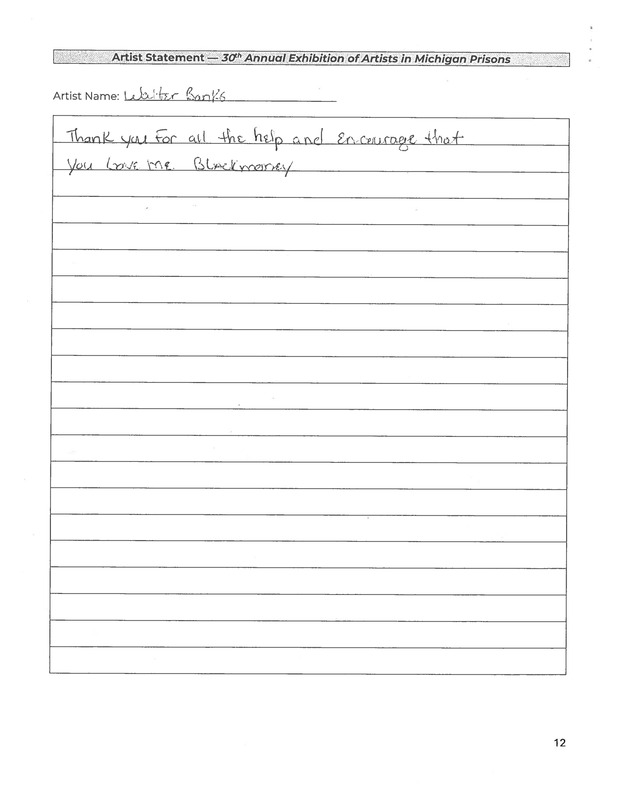 Artist Statement — 30th Annual Exhibition of Artists in Michigan Prisons
Artist Name: Walter Banks
Thank you For all the help and Encourage that
you Gave me. Blackmoney
12